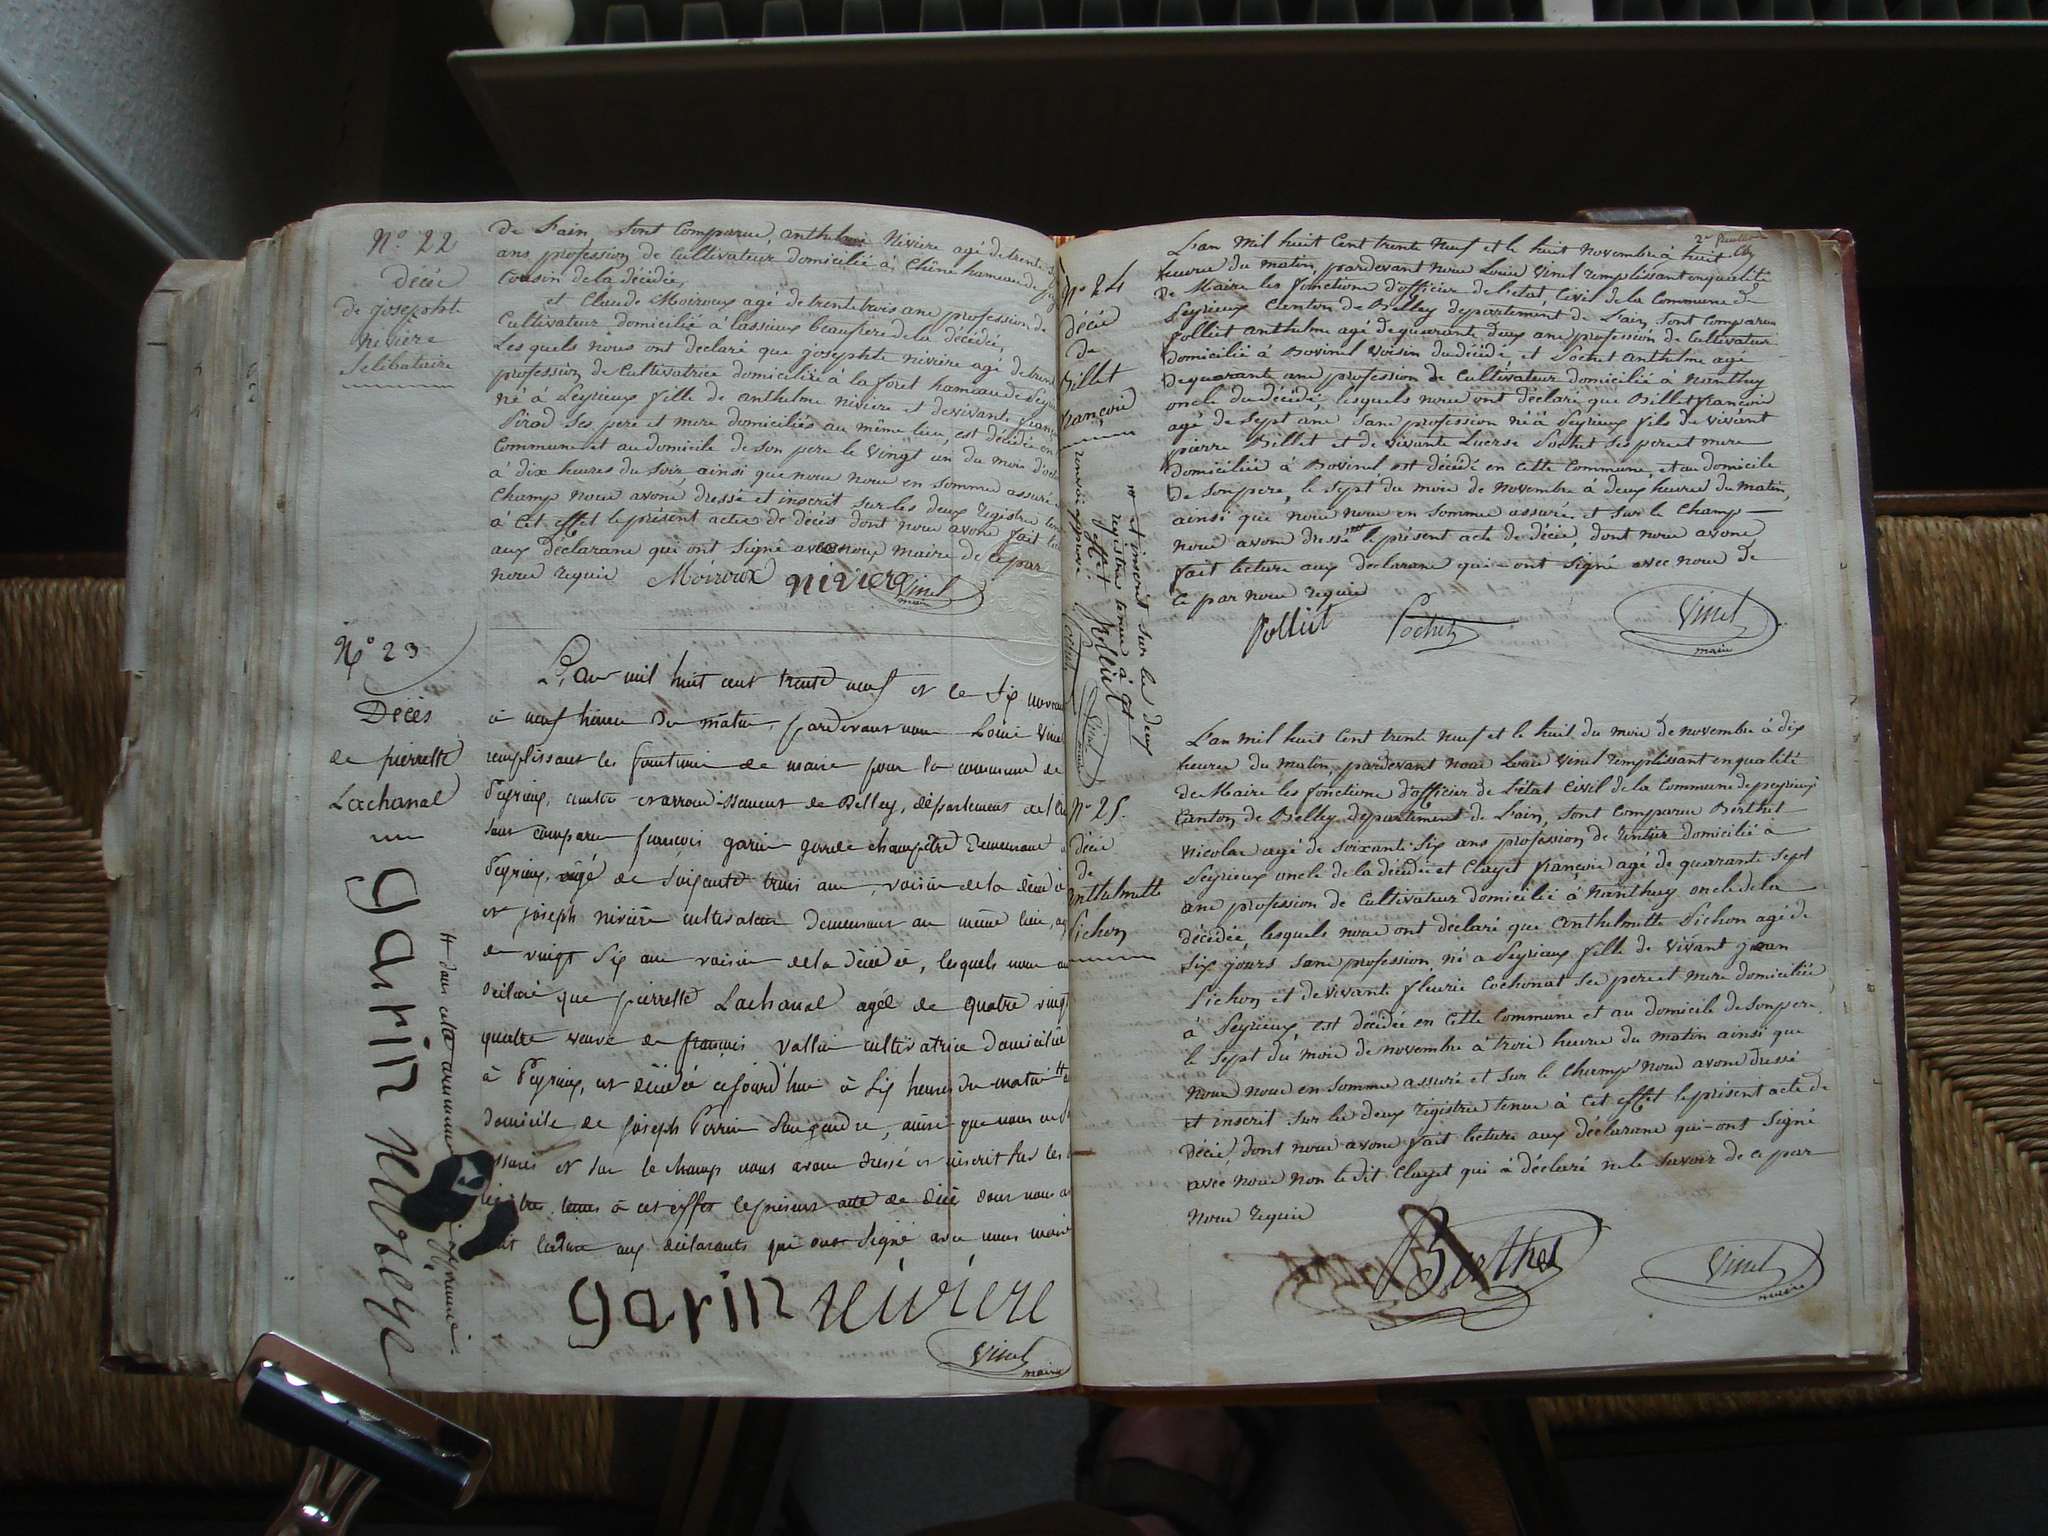 N.° 22
décé
de josephte
Nivière
Selibataire
de l'ain, sont Comparue, anthelme Nivière agé de trente
ans, profession de Cultivateur domicilié à Chêne hameau de
Cousin de la décédée,
et Claude Moiroux agé de trente trois ane profession de
Cultivateur domicilié à lassieux beaufrere de la décédée
Lesquels nous ont declaré que josephte nivière agé de
profession de Cultivatrice domiciliée à la foret hameau de
né à Peyrieux fille de anthelme nivière et de vivante
Pirod Ses père et mere domiciliés au même lieu, est décédée en
Commune et au domicile de son pere le vingt un du moi
à dix heures du Soir, ainsi que noue noue en Somme assuré
Champ noue avone dressé et inscrit sur les deux registre
à Cet effet le présent acte de décés dont noue avone fait
aux déclarane qui ont Signé avec noue maire de ce par
noue requie Moiroux nivière Vinel
maire
N° 23
Décès
de pierrette
Lachanal
garin neivière
++ dans cette commune approuvé
L'an mil huit cent trente neuf et le six
à neuf heures du matin, pardevant nous Louis
remplissant les fonctions de maire pour la commune de
Peyrieux, canton et arrondissement de Belley, département de
sont comparu françois garin garde champêtre demeurant
Peyrieux, agé de soixante trois ans, voisin de la décédée
et joseph nivière cultivateur demeurant au même lieu,
de vingt six ans voisin de la décédée, lesquels nous
déclaré que pierrette Lachanal agée de quatre vingt
quatre veuve de françois Vallin cultivatrice domiciliée
à Peyrieux, est décédée cejourd'hui à six heures du matin ++
domicile de joseph Perrin son gendre, ainsi que nous
assurés et sur le champ nous avons dressé et inscrit sur les
registres tenus à cet effet le présent acte de décè dont nous
fait lecture aux déclarants qui ont signé avec nous maire
garin neivière
Vinel
maire
2e feuillet
N° 24
décéé
de
Billet
françoie
et inscrit sur le deux
registre tenue à cet
effet
renvoi approuvé Polliet
Pochet Vinel
maire
L'an mil huit Cent trente neuf et le huit novembre à huit
heure du matin, pardevant noue Louie Vinel remplissant en qualité
de Maire les fonctione d'officier de l'etat Civil de la Commune de
Peyrieux Canton de Belley departement de l'ain, sont comparue
Polliet anthelme agé de quarante deux ane profession de Cultivateur
domicilié à Bovinel voisin du décédé et Pochet anthelme agé
de quarante ane profession de Cultivateur domicilié à Nanthuy
oncle du décédé, lesquels noue ont déclaré que Billet françoie
agé de sept ane sane profession né à Peyrieux fils de vivant
pierre Billet et de vivante Pochet ses pere et mere
domiciliée à Bovinel est décédé en cette Commune et au domicile
de son pere, le sept du moie de novembre à deux heure du matin,
ainsi que noue noue en somme assuré et sur le champ
noue avone dressé le présent acte de décée, dont noue avone
fait lecture aux declarane qui ont signé avec noue de
ce par noue requie
Polliet Pochet Vinel
maire
N° 25.
décéé
de
anthelmette
Pichon
L'an mil huit Cent trente neuf et le huit du moie de novembre à dix
heure du matin, pardevant noue Louie Vinel remplissant en qualité
de Maire les fonctione d'officier de l'état Civil de la Commune de peyrieux
Canton de Belley departement de l'ain, sont comparue Berthet
Nicolas agé de soixante six ans profession de rentier domicilié à
Peyrieux oncle de la décédée et Clayet françoie agé de quarante sept
ane profession de Cultivateur domicilié à Nanthuy oncle de la
décédée, lesquels noue ont déclaré que anthelmette Pichon agé de
six jours sane profession né à Peyrieux fille de vivant jean
Pichon et de vivante fleurie Cochonat ses pere et mere domiciliée
à Peyrieux, est décédée en cette Commune et au domicile de son pere,
le sept du moie de novembre à troie heure du matin ainsi que
noue noue en somme assuré et sur le champ noue avone dressé
et inscrit sur le deux registre tenue à cet effet le présent acte de
décée dont noue avone fait lecture aux déclarane qui ont signé
avec noue non le dit Clayet qui à déclaré ne le savoir de ce par
noue requie
Berthet Vinel
maire